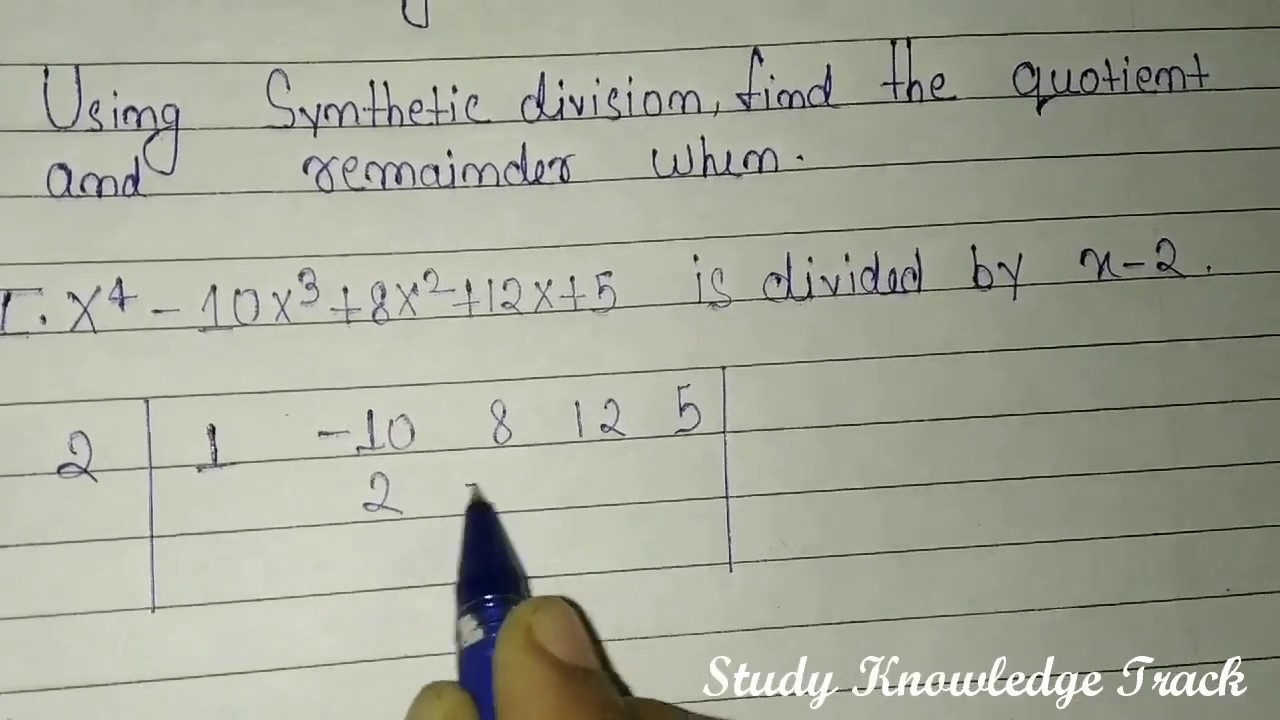 Using Synthetic division, find the quotient
and remainder when.
I. x⁴ - 10x³ + 8x² + 12x + 5 is divided by x-2.
2 1 -10 8 12 5
2 -
Study Knowledge Track